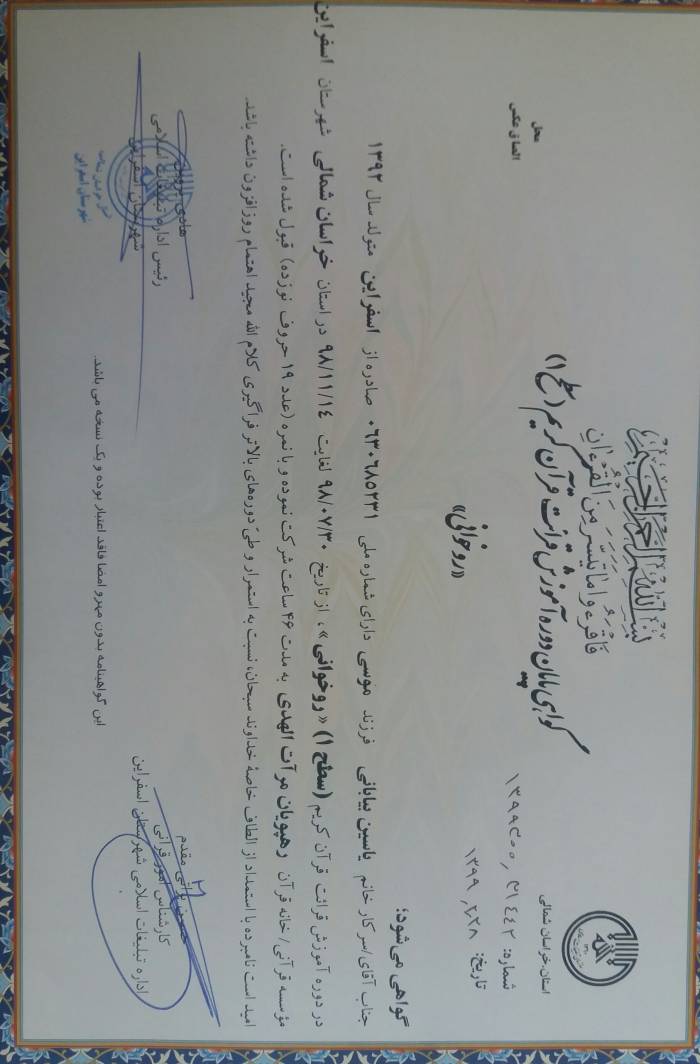 بسم الله الرحمن الرحیم
فاقرءوا ما تیسر من القرءان
گواهی پایان دوره آموزش قرائت قرآن کریم (سطح ۱)
«روخوانی»
استان: خراسان شمالی
شماره:
تاریخ: ۱۳۹۹٫۲٫۲۸
محل
الصاق عکس
گواهی می شود:
جناب آقای/سر کار خانم یاسین بیابانی فرزند موسی دارای شماره ملی ۰۶۳۰۶۸۵۲۳۱ صادره از اسفراین متولد سال ۱۳۹۲
در دوره آموزش قرائت قرآن کریم (سطح ۱) «روخوانی»، از تاریخ ۹۸/۰۷/۳۰ لغایت ۹۸/۱۱/۱۴ در استان خراسان شمالی شهرستان اسفراین
مؤسسه قرآنی/ خانه قرآن رهپویان مرآت الهدی به مدت ۴۶ ساعت شرکت نموده و با نمره (عدد ۱۹ حروف نوزده) قبول شده است.
امید است نامبرده با استمداد از الطاف خاصهٔ خداوند سبحان، نسبت به استمرار و طی دوره‌های بالاتر فراگیری کلام الله مجید اهتمام روز افزون داشته باشد.
مقدم
کارشناس امور قرآنی
اداره تبلیغات اسلامی شهرستان اسفراین
هادی
رئیس اداره تبلیغات اسلامی
شهرستان اسفراین
شهرستان اسفراین
این گواهینامه بدون مهر و امضا فاقد اعتبار بوده و یک نسخه می باشد.